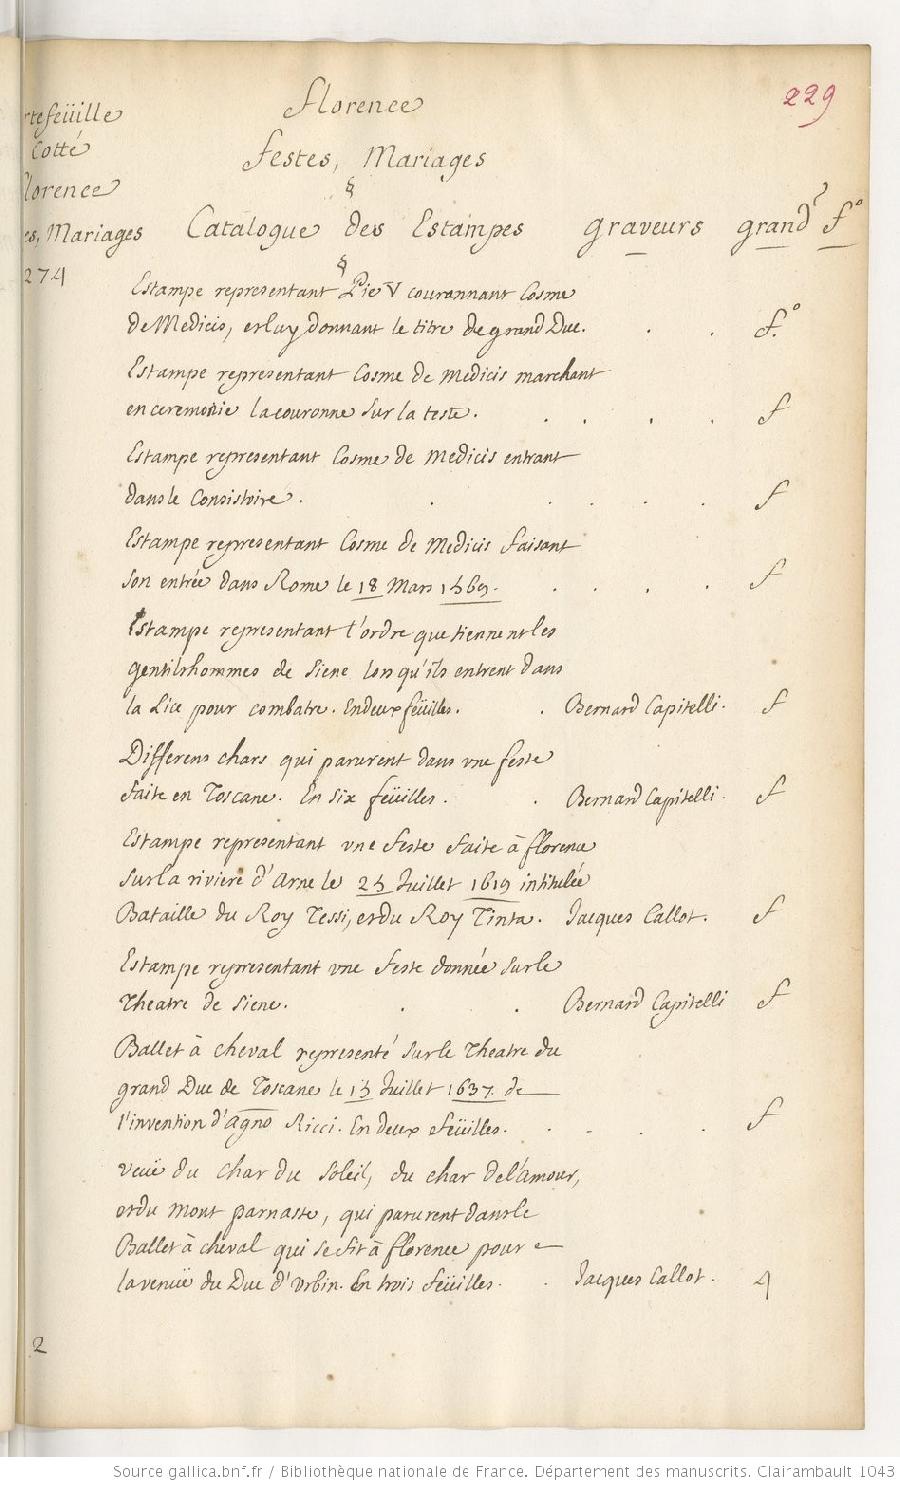 229
Florence
Festes, Mariages
§
rtefeüille
Cotté
lorence
es, Mariages
274
Catalogue des Estampes graveurs grand.r f.o
§
Estampe representant Pie V couronnant Cosme
de Medicis, et luy donnant le titre de grand Duc. . . f.o
Estampe representant Cosme de Medicis marchant
en ceremonie la couronne sur la teste. . . . . f
Estampe representant Cosme de Medicis entrant
dans le Consistoire. . . . . . f
Estampe representant Cosme de Medicis faisant
son entrée dans Rome le 18 Mars 1569. . . . . f
Estampe representant l'ordre que tiennent les
gentilshommes de Siene lors qu'ils entrent dans
la Lice pour combatre. En deux feüilles. . Bernard Capitelli. f
Differens chars qui parurent dans vne feste
faite en Toscane. En six feüilles. . Bernard Capitelli. f
Estampe representant vne feste faite à florence
sur la riviere d'Arne le 25 Juillet 1619 intitulée
Bataille du Roy Tessi, et du Roy Tinta. Jacques Callot. f
Estampe representant vne feste donnée sur le
Theatre de Siene. . . Bernard Capitelli f
Ballet à cheval representé sur le Theatre du
grand Duc de Toscane le 15 Juillet 1637. de
l'invention d'Agno Ricci. En deux feüilles. . . . . f
Veüe du char du Soleil, du char de l'Amour,
et du Mont parnasse, qui parurent dans le
Ballet à cheval qui se fit à florence pour
la venüe du Duc d'Vrbin. En trois feüilles. . Jacques Callot. 4
2
Source gallica.bnf.fr / Bibliothèque nationale de France. Département des manuscrits. Clairambault 1043